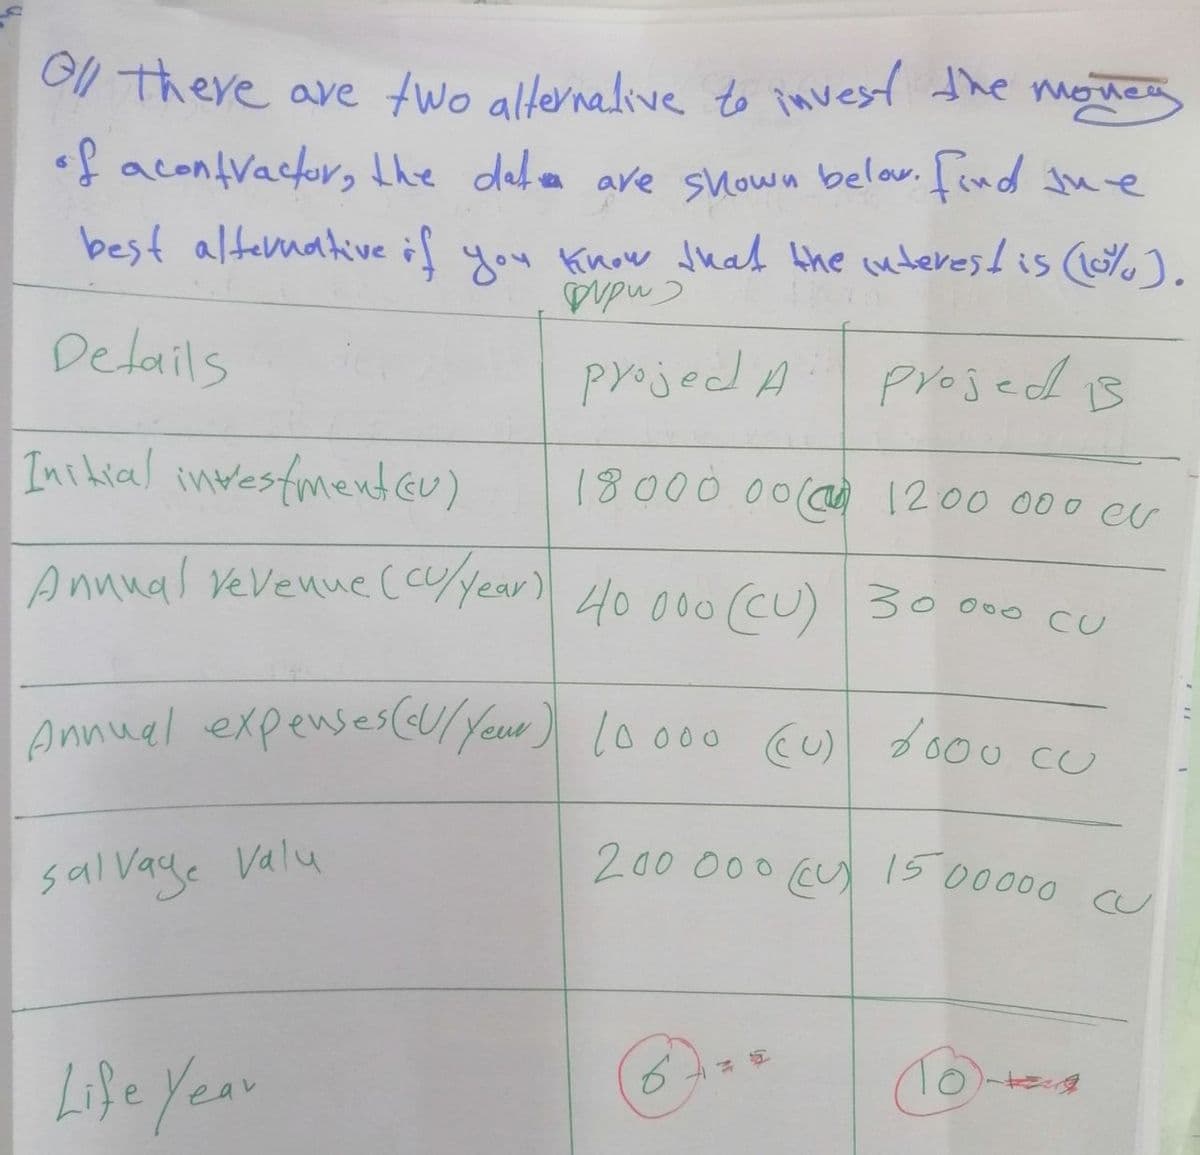 Q// There are two alternative to invest the money
of acontractor, the data are shown below. find the
best alternative if you know that the interest is (10%).
Details project A project B
Initial investment (CU) 18000 00 (CU) 1200 000 CU
Annual revenue (CU/year) 40 000 (CU) 30 000 CU
Annual expenses (CU/Year) 10 000 (CU) 8000 CU
salvage Valu 200 000 (CU) 15 00000 CU
Life Year 6 10